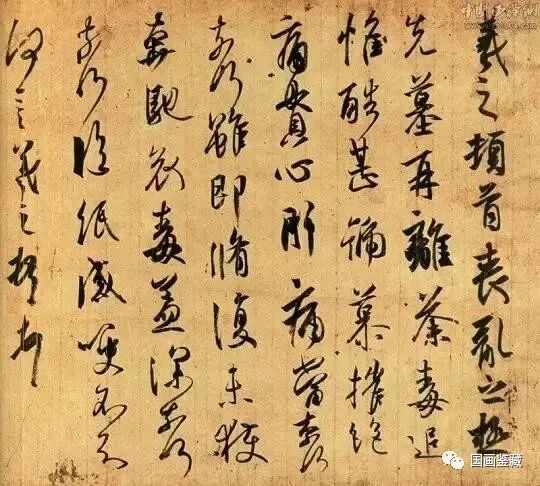 羲之頓首喪亂之極
先墓再離荼毒追
惟酷甚號慕摧絕
痛貫心肝痛當奈何
奈何雖即脩復未獲
奔馳哀毒益深奈何
奈何臨紙感哽不知
何言羲之頓首頓首
国画鉴藏